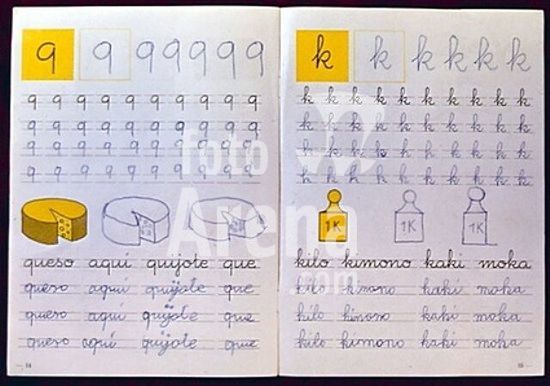 q q q q q q q
q q q q q q q q q q
q q q q q q q q q q
q q q q q q q q q q
q q q q q q q q q q
queso aquí quijote que
queso aquí quijote que
queso aquí quijote que
queso aquí quijote que
14
k k k k k k
k k k k k k k k k k
k k k k k k k k k k
k k k k k k k k k k
k k k k k k k k k k
1K 1K 1K
kilo kimono kaki moka
kilo kimono kaki moka
kilo kaki moka
kilo kimono kaki moka
15
foto
Arena
.com